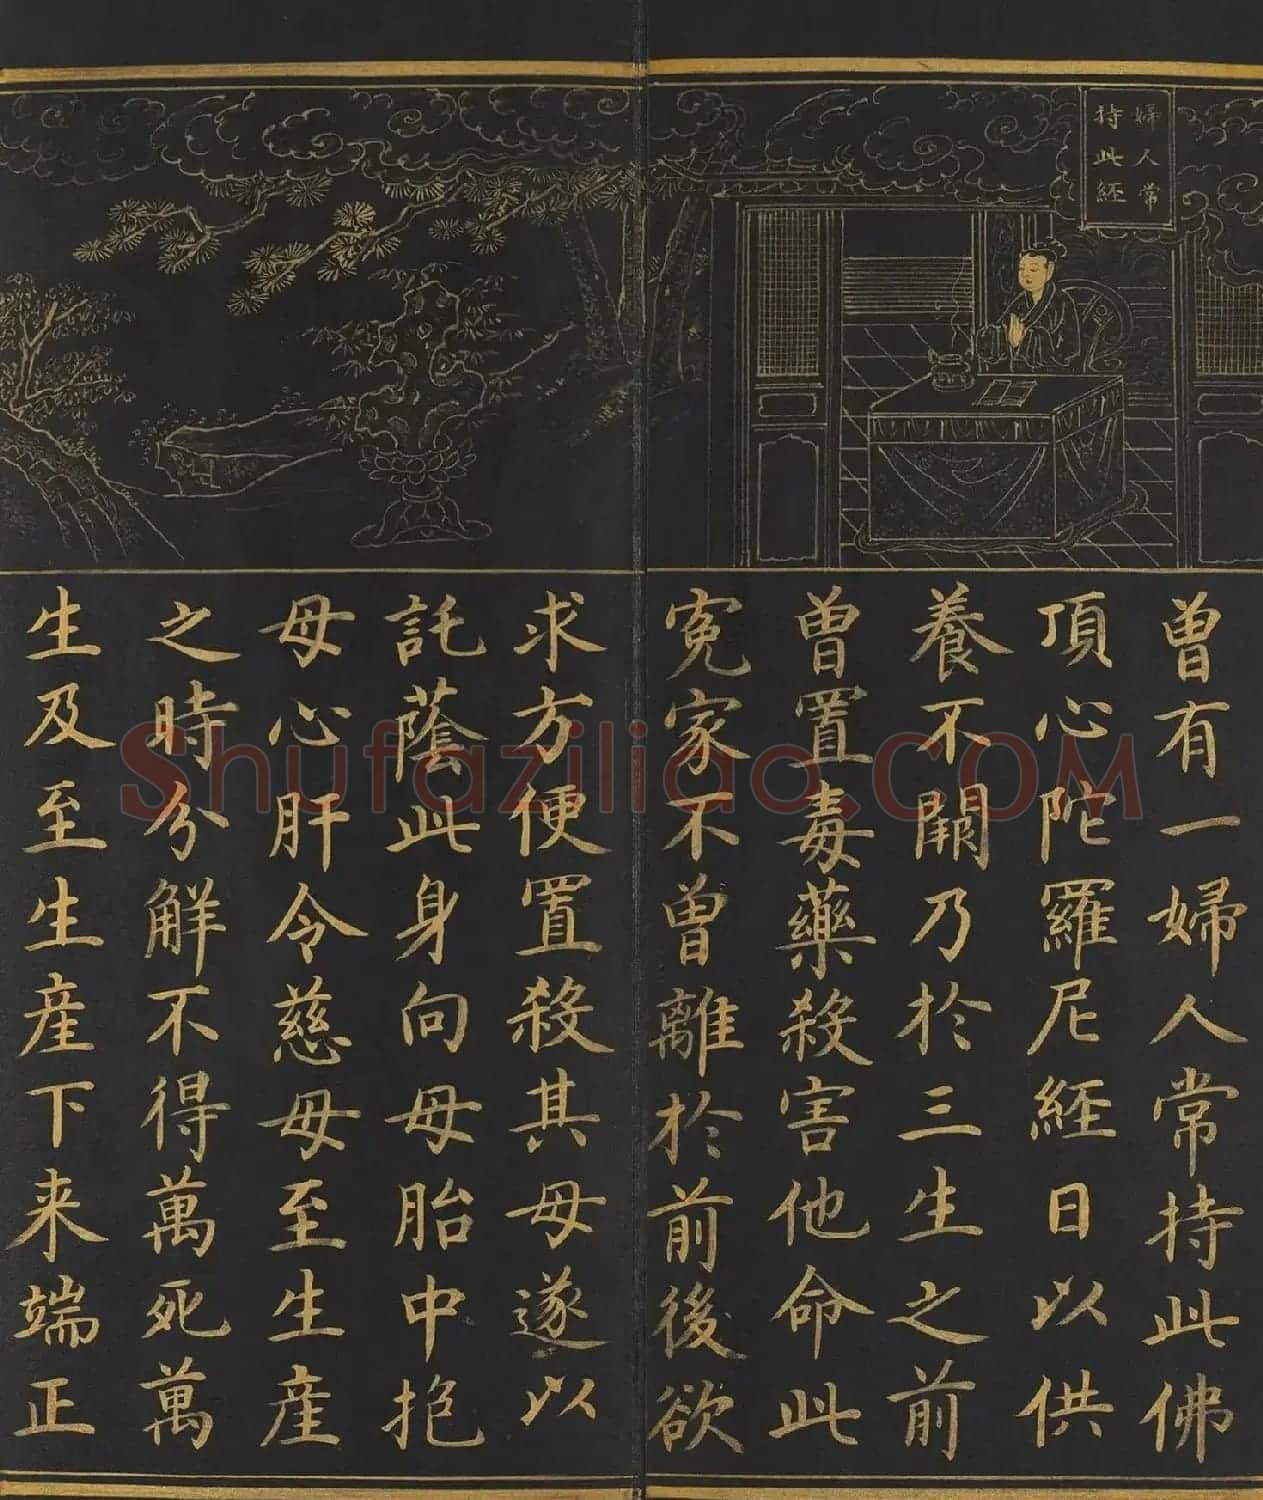 婦人常
持此經
曾有一婦人常持此佛
頂心陀羅尼經日以供
養不闕乃於三生之前
曾置毒藥殺害他命此
寃家不曾離於前後欲
求方便置殺其母遂以
託蔭此身向母胎中抱
母心肝令慈母至生産
之時分解不得萬死萬
生及至生産下来端正
Shufaziliao.COM